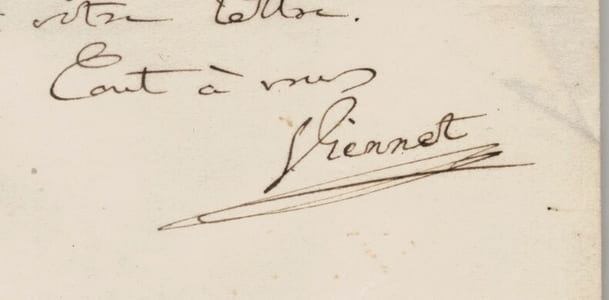 votre lettre.
Tout à vous
Viennet